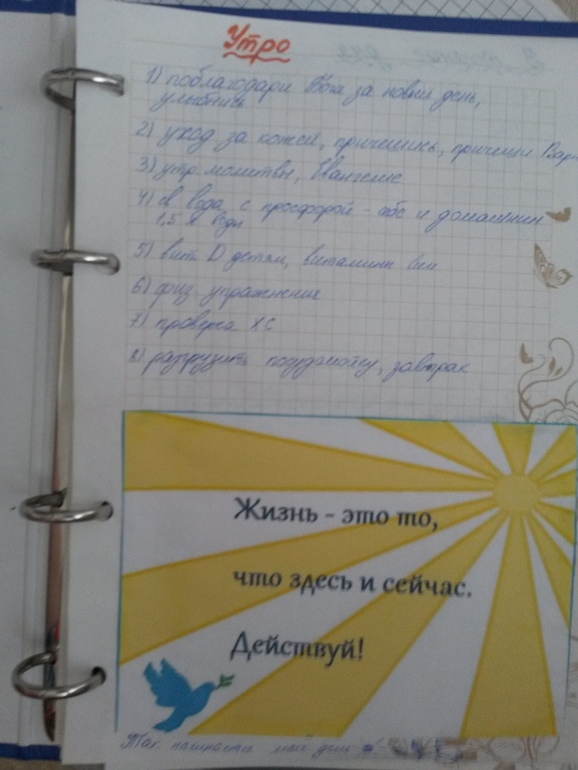 Утро
1) поблагодари Бога за новый день,
улыбнись
2) уход за кожей, причешись, причеши Варю
3) утр. молитвы, Евангелие
4) св вода с просфорой - себе и домашним
1,5 л воды
5) вит. D детям, витамины
6) физ. упражнения
7) проверка ХС
8) разгрузить посудомойку, завтрак
Жизнь - это то,
что здесь и сейчас.
Действуй!
Так начинается мой день